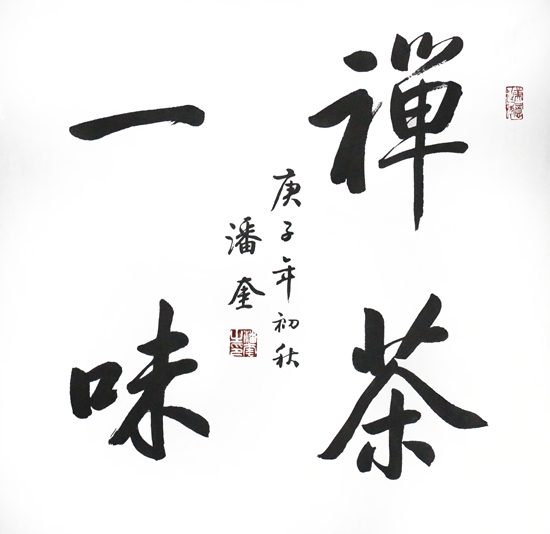 禪茶
一味
庚子年初秋
潘奎